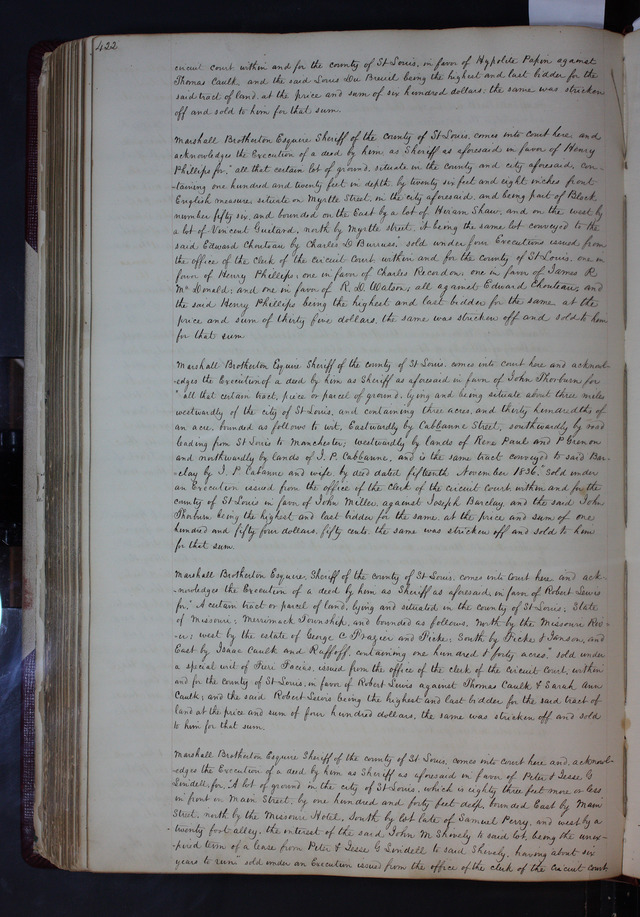 422
circuit court within and for the county of St Louis, in favor of Hypolite Papin against
Thomas Caulk, and the said Louis Du Breuil being the highest and last bidder for the
said tract of land, at the price and sum of six hundred dollars, the same was stricken
off and sold to him for that sum.
Marshall Brotherton Esquire Sheriff of the county of St Louis, comes into court here, and
acknowledges the Execution of a deed by him as Sheriff as aforesaid in favor of Henry
Phillips for, "all that certain lot of ground, situate in the county and city aforesaid, con-
-taining one hundred and twenty feet in depth by twenty six feet and eight inches front
English measure, situate on Myrtle Street, in the city aforesaid, and being part of Block
number fifty six, and bounded on the East by a lot of Hiram Shaw, and on the west by
a lot of Vincent Gustard, north by Myrtle street, it being the same lot conveyed to the
said Edward Chouteau by Charles D Burrus," sold under four Executions issued from
the office of the Clerk of the circuit court, within and for the county of St Louis, one in
favor of Henry Phillips; one in favor of Charles Recordon; one in favor of James R
Mc Donald; and one in favor of R. D. Watson; all against Edward Chouteau; and
the said Henry Phillips being the highest and last bidder for the same at the
price and sum of thirty five dollars, the same was stricken off and sold to him
for that sum
Marshall Brotherton Esquire Sheriff of the county of St Louis, comes into court here and acknowl-
-edges the Execution of a deed by him as Sheriff as aforesaid in favor of John Thorburn for
"all that certain tract, piece or parcel of ground, lying and being situate about three miles
westwardly of the city of St Louis, and containing three acres, and thirty hundredths of
an acre, bounded as follows to wit, Eastwardly by Cabbanne Street, southwardly by road
leading from St Louis to Manchester; westwardly by lands of Rene Paul and P Grimon
and northwardly by lands of J. P. Cabbanne, and is the same tract conveyed to said Bar-
-clay by J. P Cabanne and wife by deed dated fifteenth November 1836," sold under
an Execution issued from the office of the Clerk of the circuit court, within and for the
county of St Louis in favor of John Miller, against Joseph Barclay and the said John
Thorburn, being the highest and last bidder for the same, at the price and sum of one
hundred and fifty four dollars, fifty cents, the same was stricken off and sold to him
for that sum.
Marshall Brotherton Esquire, Sheriff of the county of St Louis, comes into court here and ack-
-nowledges the Execution of a deed by him as Sheriff as aforesaid, in favor of Robert Lewis
for, "A certain tract or parcel of land, lying and situated, in the county of St Louis, State
of Missouri, Merrimack Township, and bounded as follows, North by the Missouri Riv-
-er; west by the estate of George C Frazier and Ficke; South by Ficke & Janson, and
East by Isaac Caulk and Raffoff, containing one hundred & forty acres," sold under
a special writ of Fieri Facias, issued from the office of the clerk of the circuit court, within
and for the county of St Louis, in favor of Robert Lewis against Thomas Caulk & Sarah Ann
Caulk; and the said Robert Lewis being the highest and last bidder for the said tract of
land at the price and sum of four hundred dollars, the same was stricken off and sold
to him for that sum.
Marshall Brotherton Esquire Sheriff of the county of St Louis, comes into court here and acknowl-
-edges the Execution of a deed by him as Sheriff as aforesaid in favor of Peter & Jesse G
Lindell, for, "A lot of ground in the city of St Louis, which is eighty three feet more or less
in front on Main Street, by one hundred and forty feet deep, bounded East by Main
Street, north by the Missouri Hotel, South by lot late of Samuel Perry, and west by a
twenty foot alley, the interest of the said John M Shively to said lot, being the unex-
-pired term of a lease from Peter & Jesse G Lindell to said Shively, having about six
years to run" sold under an Execution issued from the office of the clerk of the circuit court